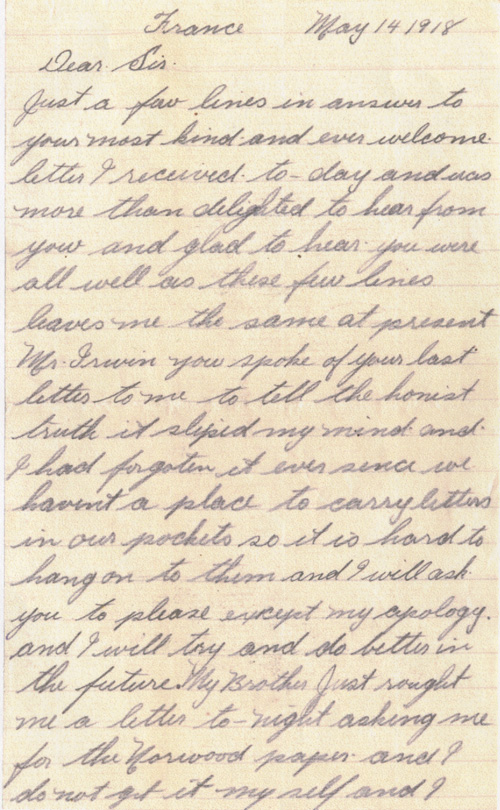 France May 14 1918
Dear Sir.
Just a few lines in answer to
your most kind and ever welcome
letter I received to-day and was
more than delighted to hear from
you and glad to hear you were
all well as these few lines
leaves me the same at present
Mr. Irwin you spoke of your last
letter to me to tell the honist
truth it sliped my mind and
I had forgoten it ever sence we
havent a place to carry letters
in our pockets so it is hard to
hang on to them and I will ask
you to please except my apology.
and I will try and do better in
the future. My Brother Just rought
me a letter to-night asking me
for the Norwood paper and I
do not get it my self and I